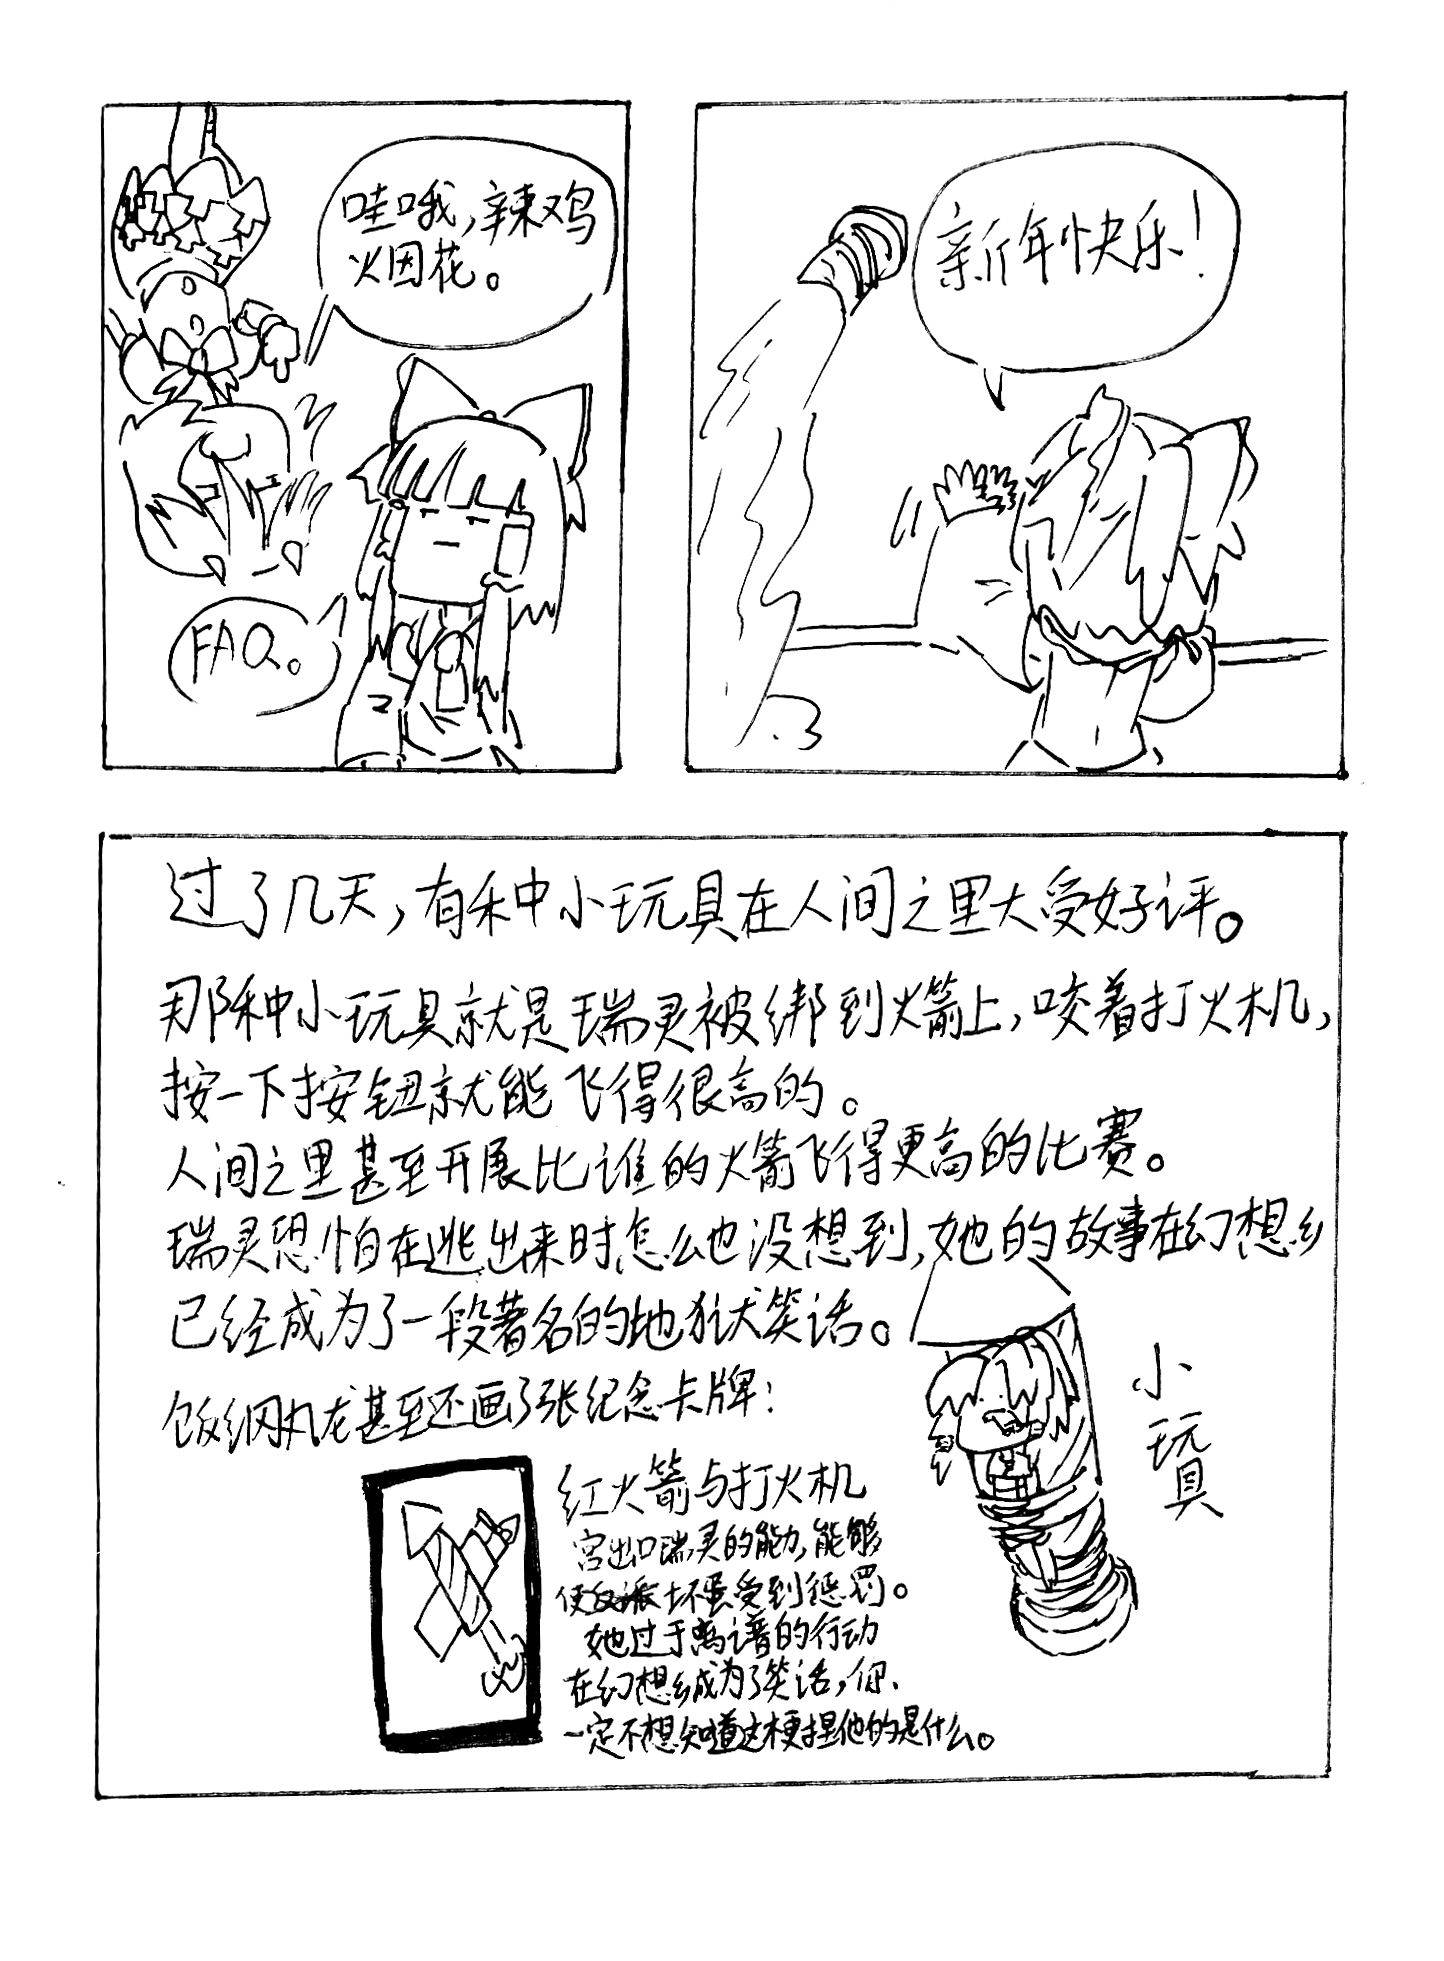 哇哦,辣鸡
火因花。
FAQ。
新年快乐!
过了几天,有种小玩具在人间之里大受好评。
那种小玩具就是瑞灵被绑到火箭上,咬着打火机,
按一下按钮就能飞得很高的。
人间之里甚至开展比谁的火箭飞得更高的比赛。
瑞灵恐怕在逃出来时怎么也没想到,她的故事在幻想乡
已经成为了一段著名的地狱笑话。
饭纲丸龙甚至还画了张纪念卡牌:
小玩具
红火箭与打火机
宫出口瑞灵的能力,能够
使坏蛋受到惩罚。
她过于离谱的行动
在幻想乡成为了笑话,你
一定不想知道这梗捏他的是什么。